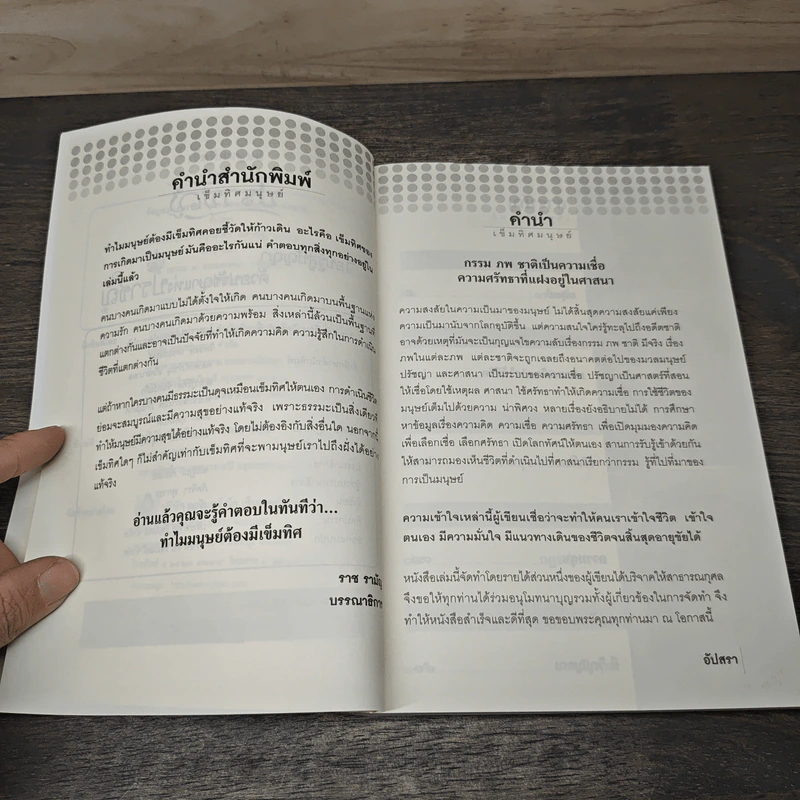 คำนำสำนักพิมพ์
เข็มทิศมนุษย์
ทำไมมนุษย์ต้องมีเข็มทิศคอยชี้วัดให้ก้าวเดิน อะไรคือ เข็มทิศของ
การเกิดมาเป็นมนุษย์ มันคืออะไรกันแน่ คำตอบทุกสิ่งทุกอย่างอยู่ใน
เล่มนี้แล้ว
คนบางคนเกิดมาแบบไม่ได้ตั้งใจให้เกิด คนบางคนเกิดมาบนพื้นฐานแห่ง
ความรัก คนบางคนเกิดมาด้วยความพร้อม สิ่งเหล่านี้ล้วนเป็นพื้นฐานที่
แตกต่างกันและอาจเป็นปัจจัยที่ทำให้เกิดความคิด ความรู้สึกในการดำเนิน
ชีวิตที่แตกต่างกัน
แต่ถ้าหากใครบางคนมีธรรมะเป็นดุจเหมือนเข็มทิศให้ตนเอง การดำเนินชีวิต
ย่อมจะสมบูรณ์และมีความสุขอย่างแท้จริง เพราะธรรมะเป็นสิ่งเดียวที่
ทำให้มนุษย์มีความสุขได้อย่างแท้จริง โดยไม่ต้องอิงกับสิ่งอื่นใด นอกจากนี้
เข็มทิศใดๆ ก็ไม่สำคัญเท่ากับเข็มทิศที่จะพามนุษย์เราไปถึงฝั่งได้อย่าง
แท้จริง
อ่านแล้วคุณจะรู้คำตอบในทันทีว่า...
ทำไมมนุษย์ต้องมีเข็มทิศ
ราช
บรรณาธิการ
คำนำ
เข็มทิศมนุษย์
กรรม ภพ ชาติเป็นความเชื่อ
ความศรัทธาที่แฝงอยู่ในศาสนา
ความสงสัยในความเป็นมาของมนุษย์ ไม่ได้สิ้นสุดความสงสัยแค่เพียง
ความเป็นมานับจากโลกอุบัติขึ้น แต่ความสนใจใคร่รู้ทะลุไปถึงอดีตชาติ
อาจด้วยเหตุที่มันจะเป็นกุญแจไขความลับเรื่องกรรม ภพ ชาติ มีจริง เรื่อง
ภพในแต่ละภพ แต่ละชาติจะถูกเฉลยถึงอนาคตต่อไปของมวลมนุษย์
ปรัชญา และศาสนา เป็นระบบของความเชื่อ ปรัชญาเป็นศาสตร์ที่สอน
ให้เชื่อโดยใช้เหตุผล ศาสนา ใช้ศรัทธาทำให้เกิดความเชื่อ การใช้ชีวิตของ
มนุษย์เต็มไปด้วยความ น่าพิศวง หลายเรื่องยังอธิบายไม่ได้ การศึกษา
หาข้อมูลเรื่องความคิด ความเชื่อ ความศรัทธา เพื่อเปิดมุมมองความคิด
เพื่อเลือกเชื่อ เลือกศรัทธา เปิดโลกทัศน์ให้ตนเอง สานการรับรู้เข้าด้วยกัน
ให้สามารถมองเห็นชีวิตที่ดำเนินไปที่ศาสนาเรียกว่ากรรม รู้ที่ไปที่มาของ
การเป็นมนุษย์
ความเข้าใจเหล่านี้ผู้เขียนเชื่อว่าจะทำให้คนเราเข้าใจชีวิต เข้าใจ
ตนเอง มีความมั่นใจ มีแนวทางเดินของชีวิตจนสิ้นสุดอายุขัยได้
หนังสือเล่มนี้จัดทำโดยรายได้ส่วนหนึ่งของผู้เขียนได้บริจาคให้สาธารณกุศล
จึงขอให้ทุกท่านได้ร่วมอนุโมทนาบุญรวมทั้งผู้เกี่ยวข้องในการจัดทำ จึง
ทำให้หนังสือสำเร็จและดีที่สุด ขอขอบพระคุณทุกท่านมา ณ โอกาสนี้
อัปสรา